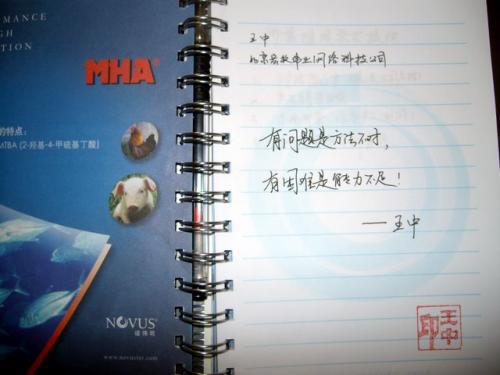 MANCE
GH
TION
MHA®
的特点：
MTBA (2-羟基-4-甲硫基丁酸)
NOVUS®
诺伟司
www.novusint.com
王中
北京农牧伟业网络科技公司
有问题是方法不对，
有困难是能力不足！
——王中
王中
印